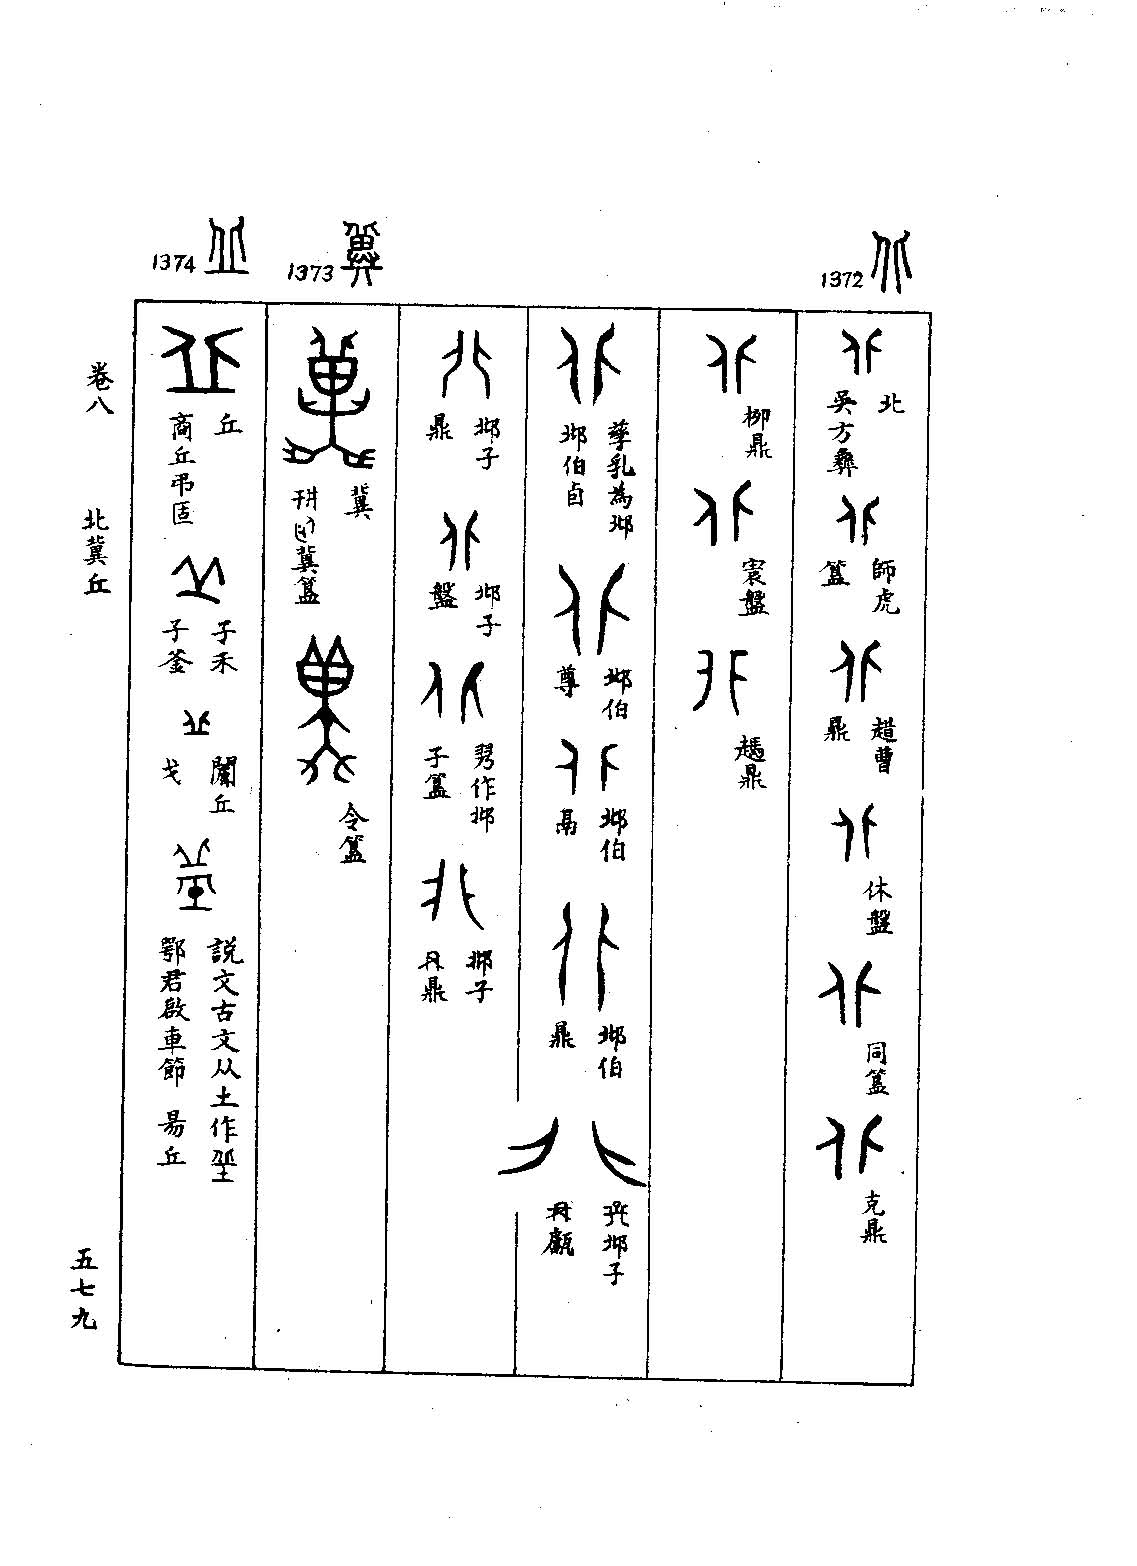 1372
北
吳方彝
師虎
簋
趞曹
鼎
休盤
同簋
克鼎
柳鼎
寰盤
趩鼎
孳乳為邶
邶伯卣
邶伯
尊
邶伯
鬲
邶伯
鼎
邶子
甗
邶子
鼎
邶子
盤
作邶
子簋
邶子
鼎
1373
冀
冀簋
令簋
1374
丘
商丘弔匿
子禾
子釜
闌丘
戈
說文古文从土作坵
鄂君啟車節 昜丘
卷八
北冀丘
五七九